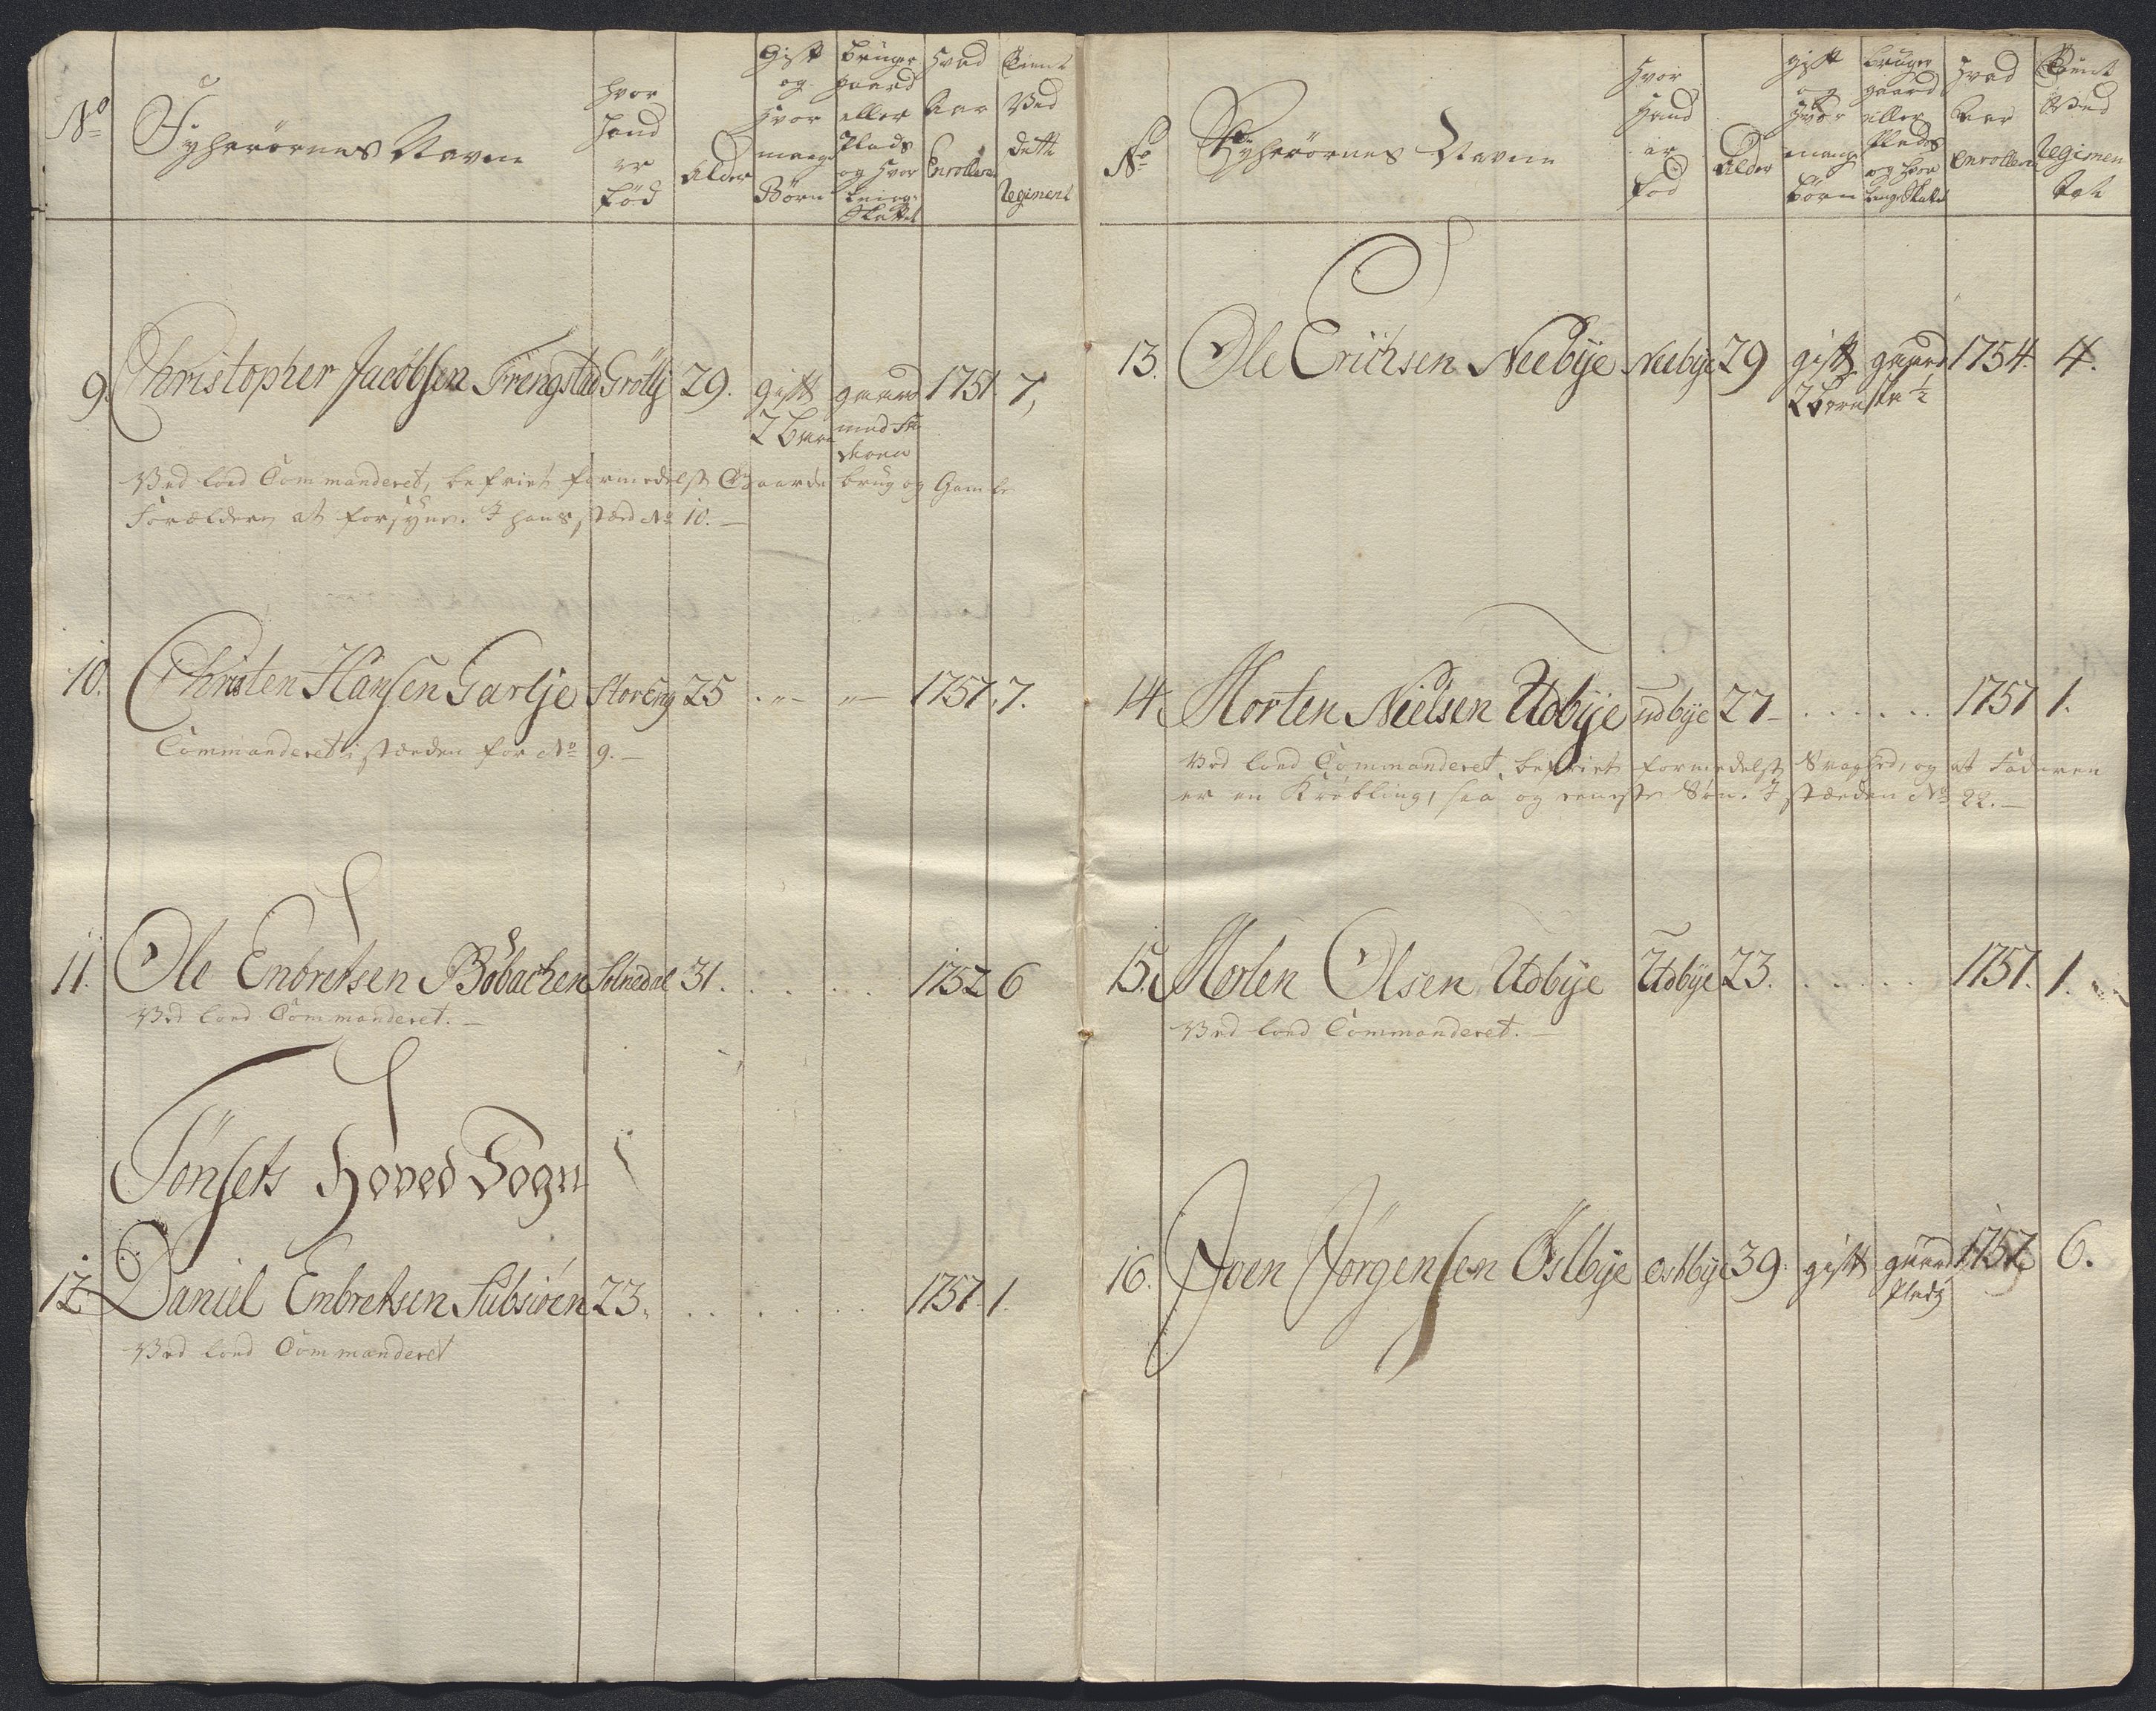 No
Schyherörnes Navne
hvor
hand
er
föd
Alder
Gift
og
hvor
mange
Börn
bruger
gaard
eller
Plads
og hvor
Skatter
hvad
Aar
Enrollered
Tient
Ved
dette
Regiment
9. Christopher Jacobsen Frengstad Grötlj 29. gift gaard 1751. 7,
2 börn med
Ved lond Commanderet, befriet formedelst Gaards brug og Gamle
Forældere at forsyne. I hans stæd No 10.
10. Christen Hansen Garlje Storeng 25 1757. 7.
Commanderet i stæden for No 9.
11. Ole Enbretsen Böbachen Solnedal 31. 1752 6
Ved lond Commanderet.
Tönsets Hoved Sogn
12. Daniel Embretsen Subsiöen 23. 1757. 1.
Ved lond Commanderet
No
Schyherörnes Navne
hvor
hand
er
föd
Alder
gift
og
hvor
mange
börn
bruger
gaard
eller
Plads
og hvor
hvad
Aar
enrollered
Tient
Ved
Regimen
tet
13. Ole Erichsen Neebÿe Neebÿe 29 gift gaard 1754. 4.
2 börn 1/2
14. Morten Nielsen Udbÿe udbÿe 27 1757 1.
Ved lond Commanderet, befriet formedelst Svaghed, og at Faderen
er en Kröbling, saa og eeneste Sön. I stæden No 22.
15. Morten Olsen Udbÿe Udbÿe 23. 1757. 1.
Ved lond Commanderet.
16. Joen Jörgensen Östbÿe östbÿe 39. gift gaard 1752 6.
Plads